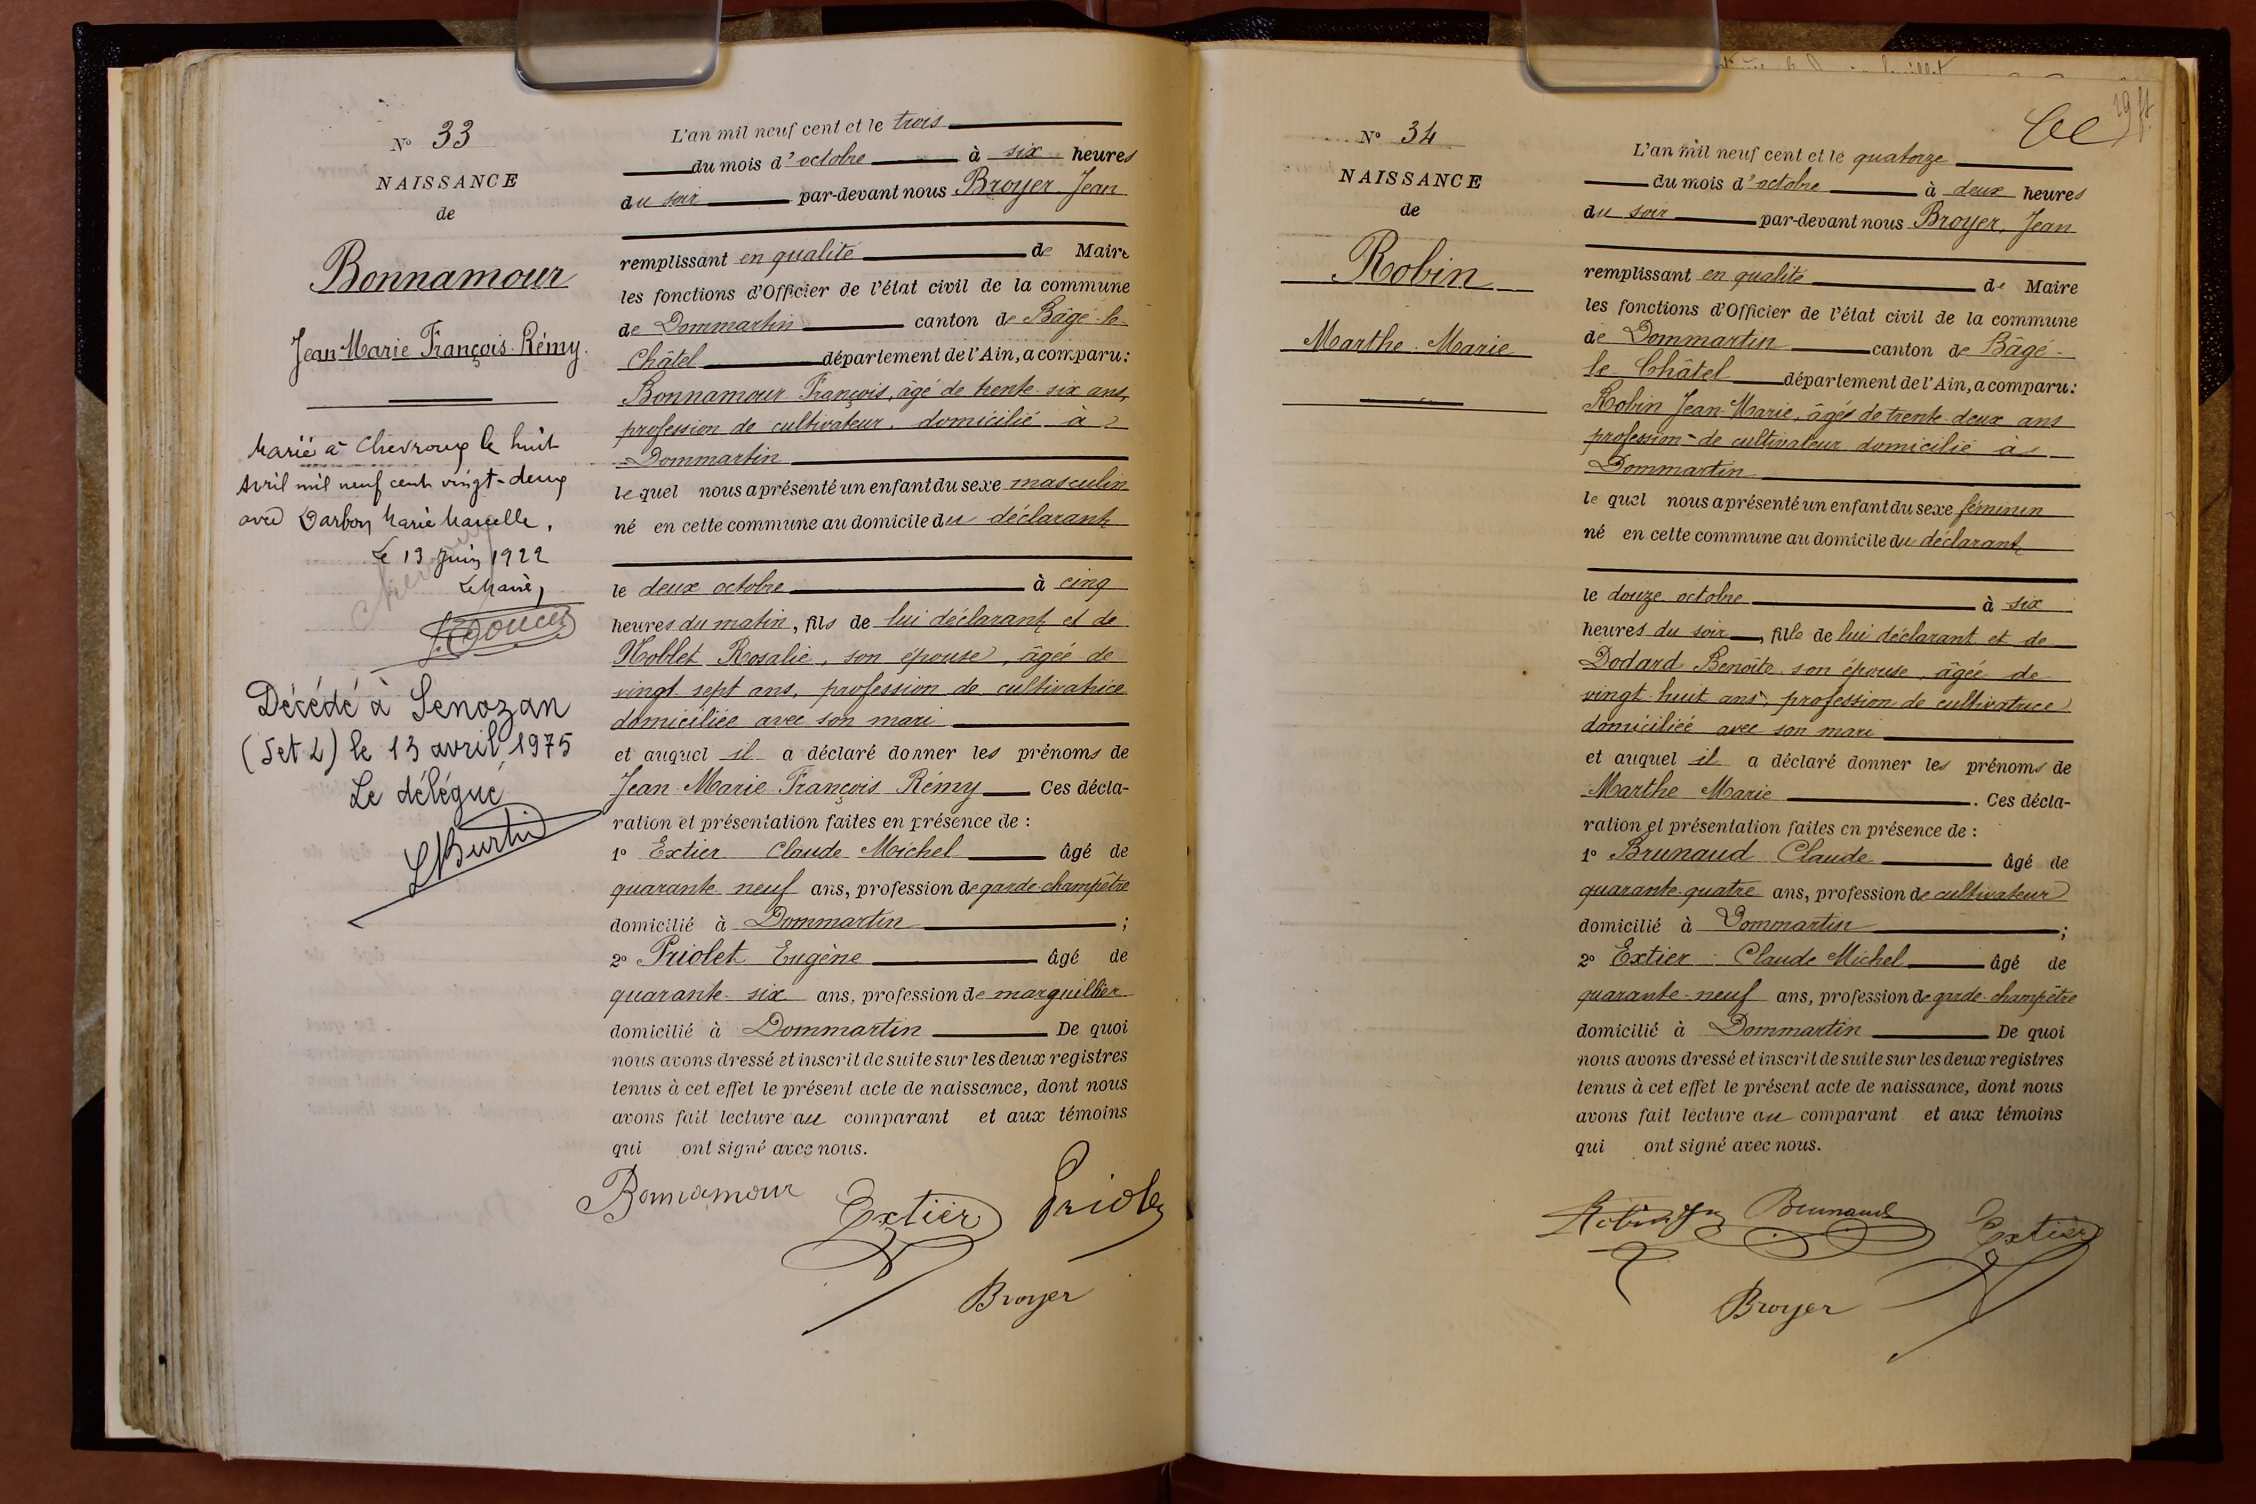 N° 33
NAISSANCE
de
Bonnamour
Jean-Marie François-Rémy.
Marié à Chevroux le huit
Avril mil neuf cent vingt-deux
avec Darbon Marie Marcelle.
Le 13 Juin 1922
Le Maire,
Chevroux
Décédé à Senozan
(S et L) le 13 avril 1975
Le délégué
L'an mil neuf cent et le trois
du mois d'octobre à six heures
du soir par-devant nous Broyer Jean
remplissant en qualité de Maire
les fonctions d'Officier de l'état civil de la commune
de Dommartin canton de Bâgé-le-
Châtel département de l'Ain, a comparu:
Bonnamour François, âgé de trente-six ans,
profession de cultivateur, domicilié à
Dommartin
le quel nous a présenté un enfant du sexe masculin
né en cette commune au domicile du déclarant
le deux octobre à cinq
heures du matin, fils de lui déclarant et de
Noblet Rosalie, son épouse, âgée de
vingt-sept ans, profession de cultivatrice
domiciliée avec son mari
et auquel il a déclaré donner les prénoms de
Jean-Marie François Rémy Ces décla-
ration et présentation faites en présence de :
1° Extier Claude Michel âgé de
quarante-neuf ans, profession de garde-champêtre
domicilié à Dommartin ;
2° Priolet Eugène âgé de
quarante-six ans, profession de marguillier
domicilié à Dommartin De quoi
nous avons dressé et inscrit de suite sur les deux registres
tenus à cet effet le présent acte de naissance, dont nous
avons fait lecture au comparant et aux témoins
qui ont signé avec nous.
Bonnamour Extier Priolet
Broyer
N° 34
NAISSANCE
de
Robin
Marthe Marie
19
L'an mil neuf cent et le quatorze
du mois d'octobre à deux heures
du soir par-devant nous Broyer, Jean
remplissant en qualité de Maire
les fonctions d'Officier de l'état civil de la commune
de Dommartin canton de Bâgé-
le-Châtel département de l'Ain, a comparu:
Robin Jean-Marie, âgés de trente-deux ans
profession de cultivateur domicilié à
Dommartin
le quel nous a présenté un enfant du sexe féminin
né en cette commune au domicile du déclarant
le douze octobre à six
heures du soir, fille de lui déclarant et de
Dodard Benoîte son épouse, âgée de
vingt-huit ans, profession de cultivatrice
domiciliée avec son mari
et auquel il a déclaré donner les prénoms de
Marthe Marie . Ces décla-
ration et présentation faites en présence de :
1° Brunaud Claude âgé de
quarante-quatre ans, profession de cultivateur
domicilié à Dommartin ;
2° Extier Claude Michel âgé de
quarante-neuf ans, profession de garde-champêtre
domicilié à Dommartin De quoi
nous avons dressé et inscrit de suite sur les deux registres
tenus à cet effet le présent acte de naissance, dont nous
avons fait lecture au comparant et aux témoins
qui ont signé avec nous.
Robin Brunaud Extier
Broyer